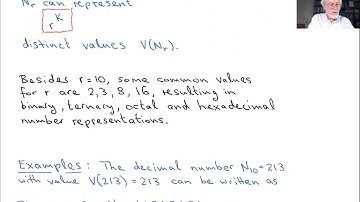 Nr can represent
r^K
distinct values V(Nr).
Besides r=10, some common values
for r are 2,3,8,16, resulting in
binary, ternary, octal and hexadecimal
number representations.
Examples: The decimal number N10=213
with value V(213)=213 can be written as